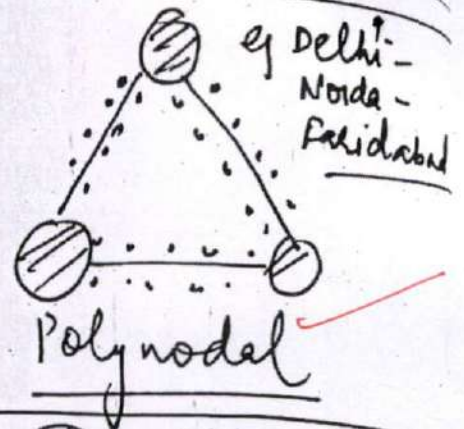 eg Delhi -
Noida -
Faridabad
Polynodal